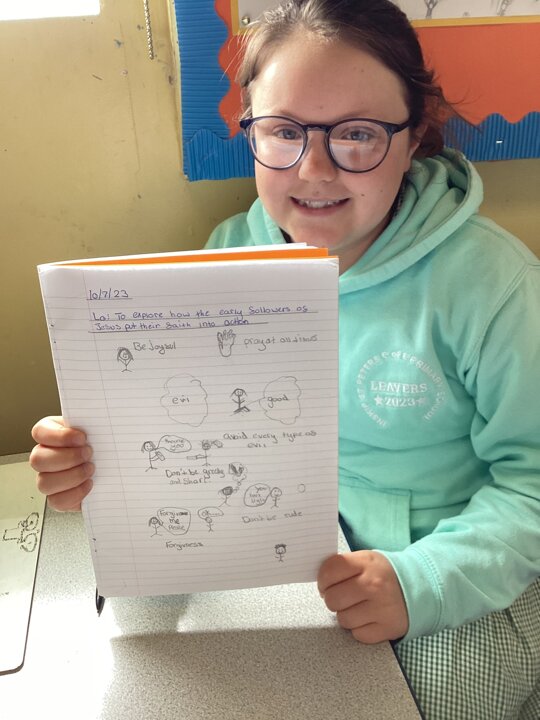 10/7/23
Lo: To explore how the early followers of
Jesus put their faith into action
Be Joyful
pray at all times
evi
good
avoid every type of
evil
Don't be greedy
and Share
you
look
Ugly
Don't be rude
Forgive
me
Please
ok
Forgivness
ST PETERS C OF E PRIMARY SCHOOL
LEAVERS
★2023★